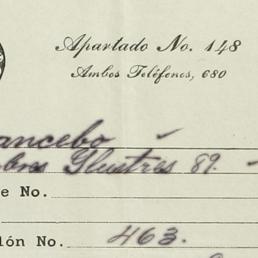 Apartado No. 148
Ambos Teléfonos, 680
ancebo
bres Ilustres 89.
e No.
lón No. 463.